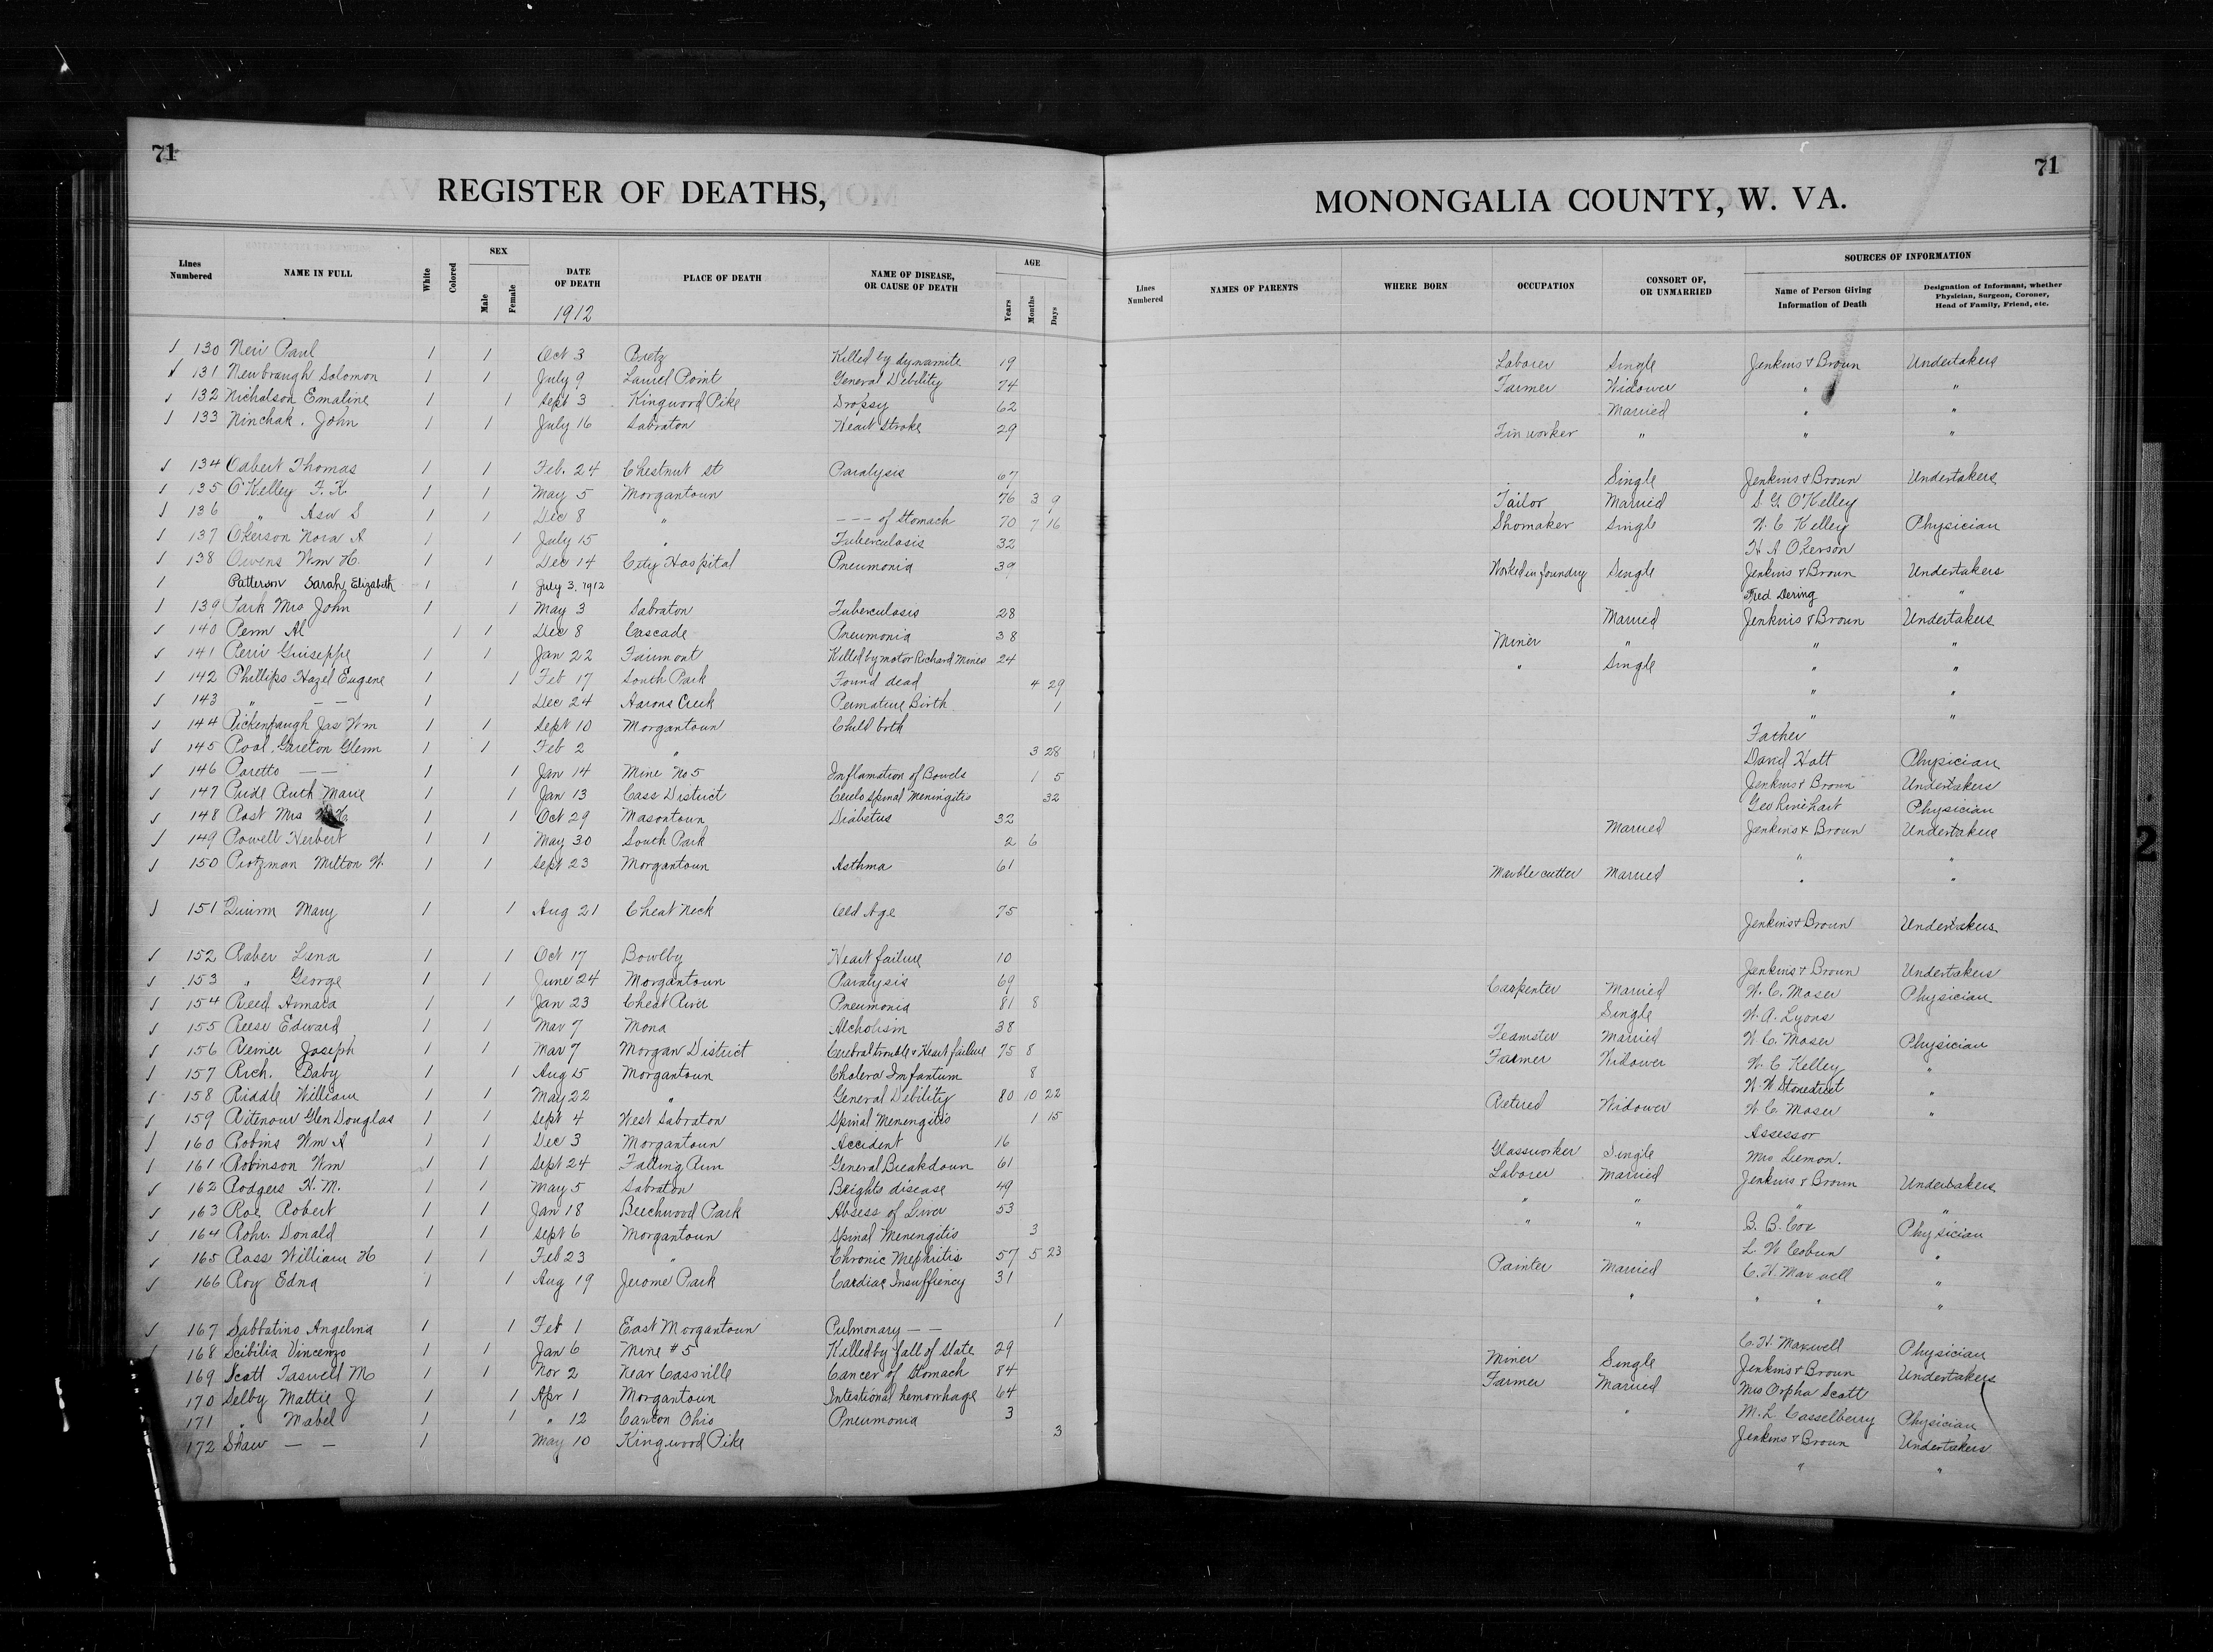 71
REGISTER OF DEATHS,
Lines Numbered NAME IN FULL White Colored SEX Male Female DATE OF DEATH PLACE OF DEATH NAME OF DISEASE, OR CAUSE OF DEATH AGE Years Months Days
1912
130 Neri Paul 1 1 Oct 3 Bretz Killed by dynamite 19
131 Newbraugh Solomon 1 1 July 9 Laurel Point General Debility 74
132 Nicholson Emaline 1 1 Sept 3 Kingwood Pike Dropsy 62
133 Ninchak. John 1 1 July 16 Sabraton Heart Stroke 29
134 Oabert Thomas 1 1 Feb. 24 Chestnut St Paralysis 67
135 O'Kelley F. K. 1 1 May 5 Morgantown 76 3 9
136 " Asw S 1 1 Dec 8 " --- of Stomach 70 7 16
137 Okerson Nora A 1 1 July 15 " Tuberculosis 32
138 Owens Wm H. 1 1 Dec 14 City Hospital Pneumonia 39
Patterson Sarah Elizabeth 1 1 July 3, 1912
139 Park Mrs John 1 1 May 3 Sabraton Tuberculosis 28
140 Penn Al 1 1 Dec 8 Cascade Pneumonia 38
141 Perri Guiseppe 1 1 Jan 22 Fairmont Killed by motor Richard Mines 24
142 Phillips Hazel Eugene 1 1 Feb 17 South Park Found dead 4 29
143 " — — 1 Dec 24 Aarons Creek Permature Birth 1
144 Pickenpaugh Jas Wm 1 1 Sept 10 Morgantown Child birth
145 Pool. Gareton Glenn 1 1 Feb 2 " 3 28
146 Paretto — — 1 1 Jan 14 Mine No 5 Inflamation of Bowels 1 5
147 Pride Ruth Marie 1 1 Jan 13 Cass District Cerelo Spinal Meningitis 32
148 Post Mrs 1 1 Oct 29 Masontown Diabetus 32
149 Powell Herbert 1 1 May 30 South Park 2 6
150 Protzman Milton W. 1 1 Sept 23 Morgantown Asthma 61
151 Quinn Mary 1 1 Aug 21 Cheat Neck Old Age 75
152 Raber Lena 1 1 Oct 17 Bowlby Heart failure 10
153 " George 1 1 June 24 Morgantown Paralysis 69
154 Reed Armata 1 1 Jan 23 Cheat River Pneumonia 81 8
155 Reese Edward 1 1 Mar 7 Mona Alcholism 38
156 Reiner Joseph 1 1 Mar 7 Morgan District Cerebral trouble & Heart failure 75 8
157 Rich. Baby 1 1 Aug 15 Morgantown Cholera Infantum 8
158 Riddle William 1 1 May 22 " General Debility 80 10 22
159 Ritenour Glen Douglas 1 1 Sept 4 West Sabraton Spinal Menengitis 1 15
160 Robins Wm A 1 1 Dec 3 Morgantown Accident 16
161 Robinson Wm 1 1 Sept 24 Falling Run General Breakdown 61
162 Rodgers H. M. 1 1 May 5 Sabraton Brights disease 49
163 Roe Robert 1 1 Jan 18 Beechwood Park Absess of Liver 53
164 Rohr. Donald 1 1 Sept 6 Morgantown Spinal Menengitis 3
165 Ross William H 1 1 Feb 23 " Chronic Nephritis 57 5 23
166 Roy Edna 1 1 Aug 19 Jerome Park Cardiac Insuffiency 31
167 Sabbatino Angelina 1 1 Feb 1 East Morgantown Pulmonary — — 1
168 Scibilia Vincenzo 1 1 Jan 6 Mine #5 Killed by fall of slate 29
169 Scott Taswell M 1 1 Nov 2 Near Cassville Cancer of Stomach 84
170 Selby Mattie J 1 1 Apr 1 Morgantown Intestional hemorrhage 64
171 " Mabel 1 1 " 12 Canton Ohio Pneumonia 3
172 Shaw — — 1 May 10 Kingwood Pike 3
71
MONONGALIA COUNTY, W. VA.
Lines Numbered NAMES OF PARENTS WHERE BORN OCCUPATION CONSORT OF, OR UNMARRIED SOURCES OF INFORMATION Name of Person Giving Information of Death Designation of Informant, whether Physician, Surgeon, Coroner, Head of Family, Friend, etc.
Laborer Single Jenkins & Brown Undertakers
Farmer Widower " "
Married " "
Tin worker " " "
Single Jenkins & Brown Undertakers
Tailor Married S. G. O'Kelley
Shomaker Single W. C. Kelley Physician
H A Okerson
Worked in foundry Single Jenkins & Brown Undertakers
Fred Dering "
Married Jenkins & Brown Undertakers
Miner " " "
" Single " "
" "
" "
Father
David Hott Physician
Jenkins & Brown Undertakers
Geo Rinehart Physician
Married Jenkins & Brown Undertakers
" "
Marble cutter Married " "
Jenkins & Brown Undertakers
Jenkins & Brown Undertakers
Carpenter Married W. C. Moser Physician
Single W. A. Lyons
Teamster Married W. C. Moser Physician
Farmer Widower W. C Kelley "
W. W Stonestreet "
Retired Widower W. C. Moser "
Assessor
Glassworker Single Mrs Lemon.
Laborer Married Jenkins & Brown Undertakers
" " " "
" " B. B. Cox Physician
L. W Cobun "
Painter Married C. H. Maxwell "
" " " "
C. H. Maxwell Physician
Miner Single Jenkins & Brown Undertakers
Farmer Married Mrs Orpha Scott
" M. L. Casselberry Physician
Jenkins & Brown Undertakers
" "
2